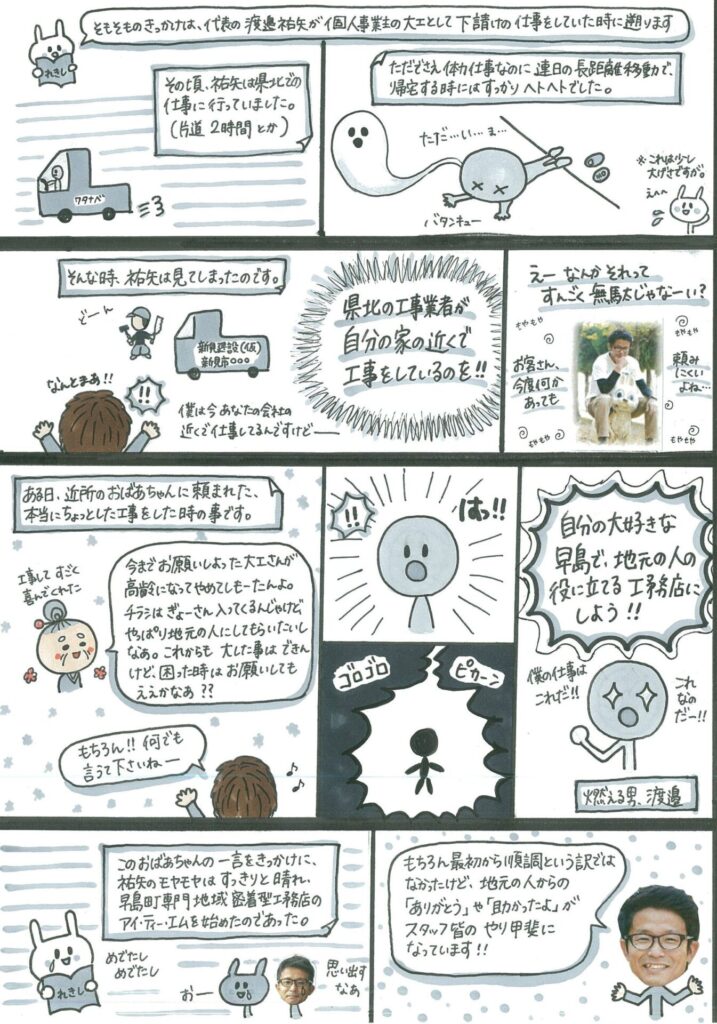 そもそものきっかけは、代表の渡邉祐矢が個人事業主の大工として下請けの仕事をしていた時に遡ります
れきし
その頃、祐矢は県北での
仕事に行っていました。
(片道 2時間 とか)
ワタナベ
ただでさえ体力仕事なのに 連日の長距離移動で、
帰宅する時にはすっかりヘトヘトでした。
ただ…い…ま…
バタンキュー
※これは少し
大げさですが。
えへへ
そんな時、祐矢は見てしまったのです。
どーん
新見建設(仮)
新見市○○○
なんとまあ!!
!!
僕は今あなたの会社の
近くで仕事してるんですけど──
県北の工事業者が
自分の家の近くで
工事をしているのを!!
えー なんかそれって
すんごく無駄じゃなーい?
もやもや
もやもや
お客さん、
今度何か
あっても
頼み
にくい
よね…
もやもや
もやもや
ある日、近所のおばあちゃんに頼まれた、
本当にちょっとした工事をした時の事です。
工事してすごく
喜んでくれた
今までお願いしよった大工さんが
高齢になってやめてしもーたんよ。
チラシはぎょーさん入ってくるんじゃけど
やっぱり地元の人にしてもらいたいし
なあ。これからも 大した事はできん
けど、困った時はお願いしても
ええかなあ??
もちろん!!何でも
言うて下さいねー
!!
はっ!!
ゴロゴロ
ピカーン
自分の大好きな
早島で、地元の人の
役に立てる工務店に
しよう!!
僕の仕事は
これだ!!
これ
なの
だー!!
燃える男、渡邉
このおばあちゃんの一言をきっかけに、
祐矢のモヤモヤはすっきりと晴れ、
早島町専門地域密着型工務店の
アイ・ティー・エムを始めたのであった。
れきし
めでたし
めでたし
おー
思い出す
なあ
もちろん最初から順調という訳では
なかったけど、地元の人からの
「ありがとう」や「助かったよ」が
スタッフ皆のやり甲斐に
なっています!!